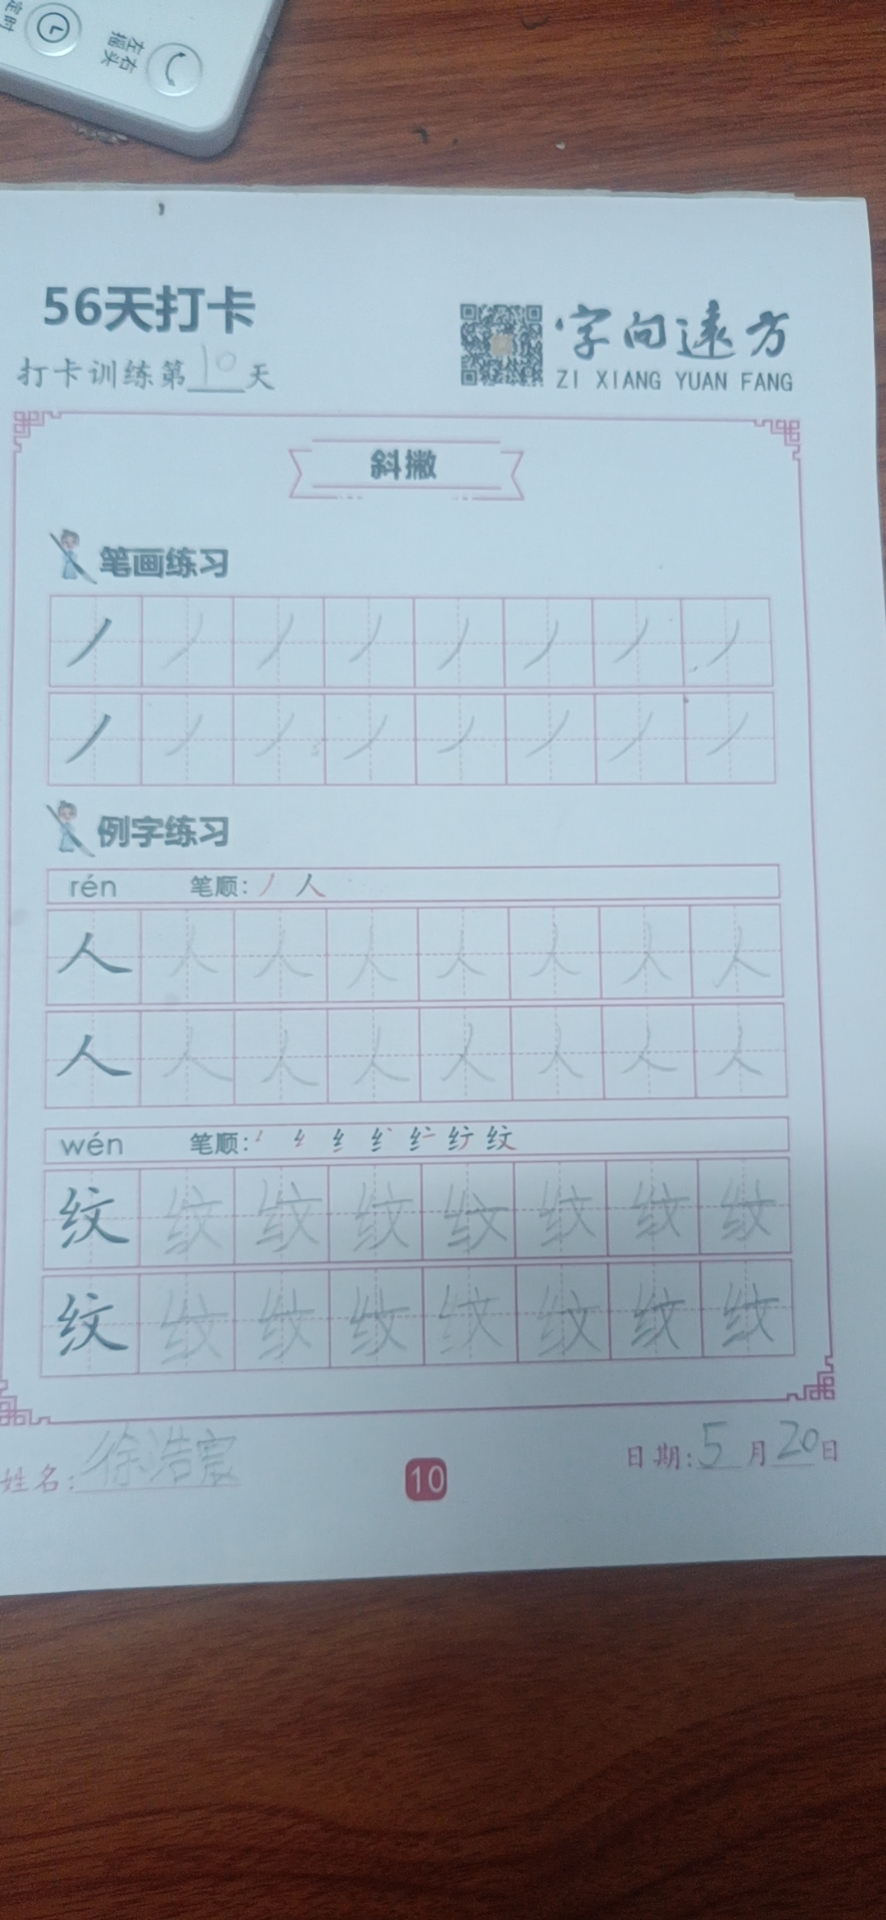 定时
左右
摇头
56天打卡
打卡训练第10天
字向远方
ZI XIANG YUAN FANG
斜撇
笔画练习
丿 丿 丿 丿 丿 丿 丿 丿
丿 丿 丿 丿 丿 丿 丿 丿
例字练习
rén 笔顺: 丿 人
人 人 人 人 人 人 人 人
人 人 人 人 人 人 人 人
wén 笔顺: 纟 纹
纹 纹 纹 纹 纹 纹 纹 纹
纹 纹 纹 纹 纹 纹 纹 纹
姓名: 徐浩宸
10
日期: 5月20日